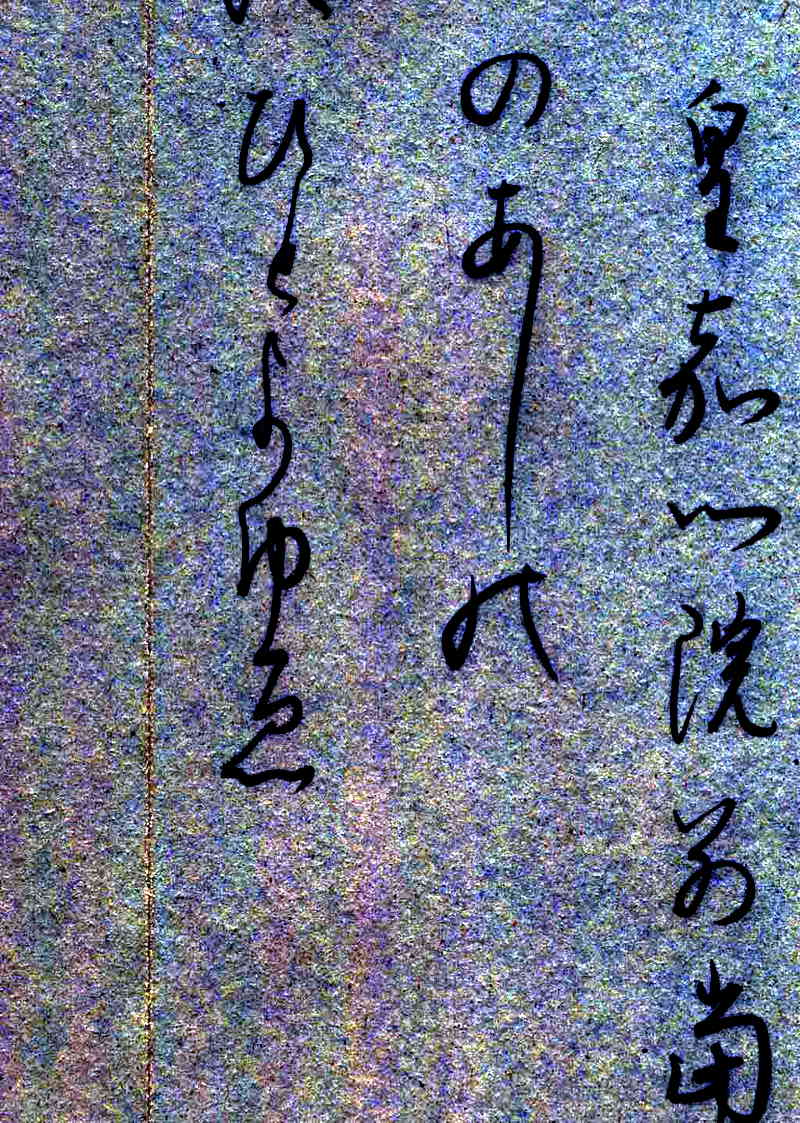 皇嘉門院別當
のあしの
ひとよゆゑ